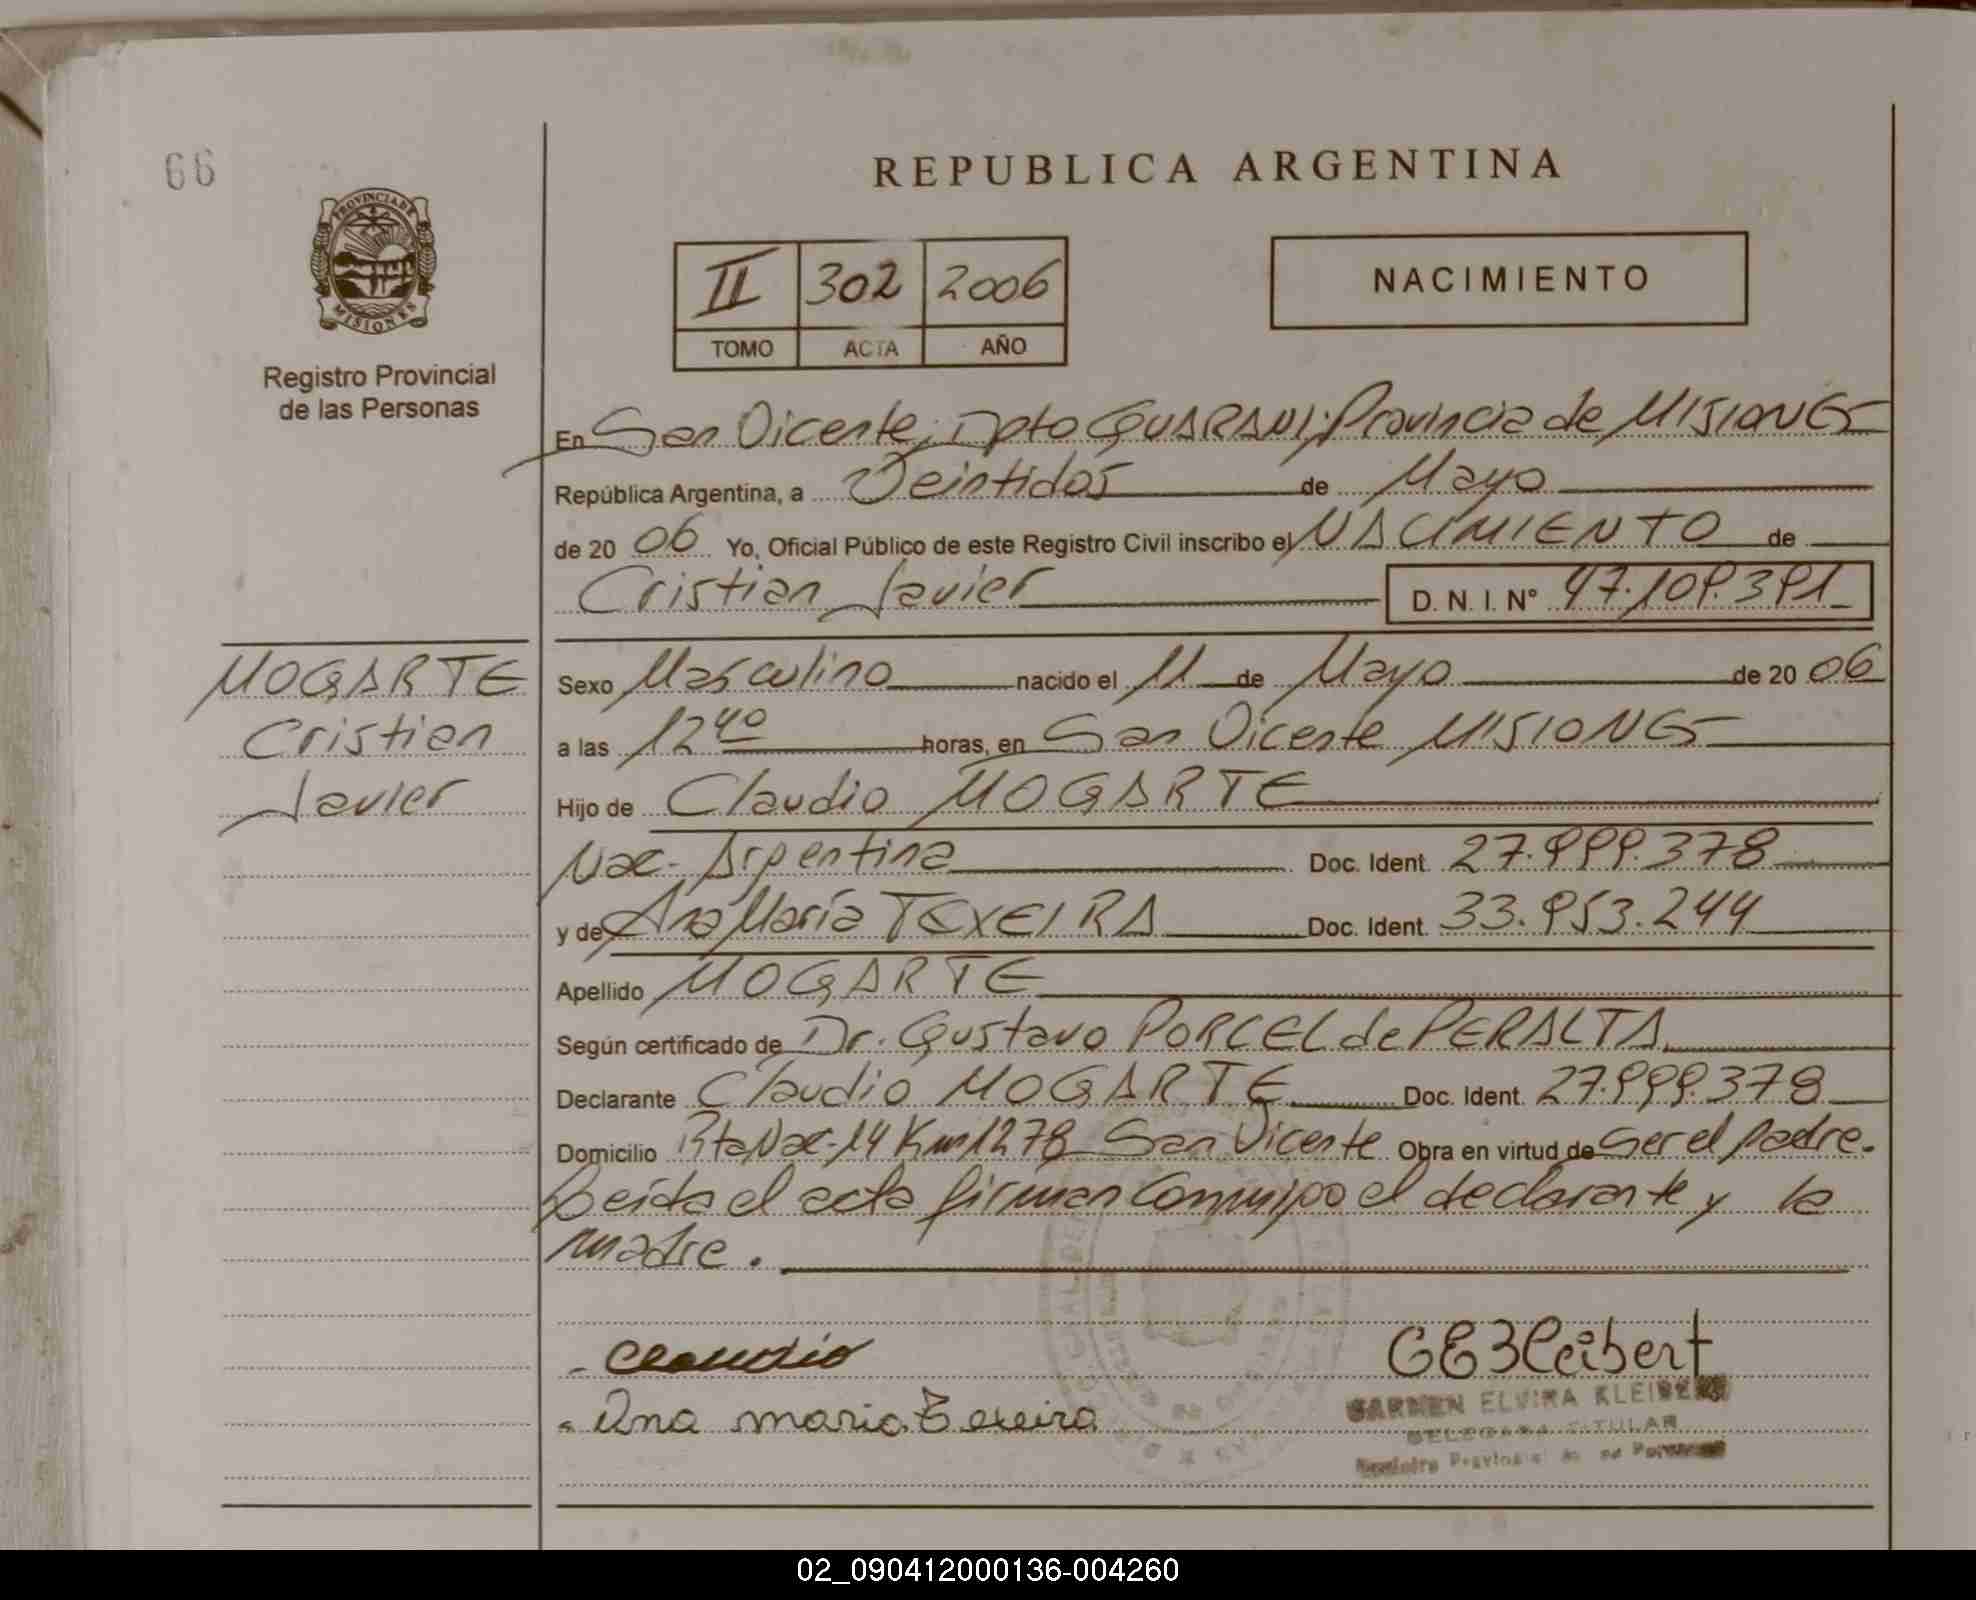 66
REPUBLICA ARGENTINA
PROVINCIA DE
MISIONES
Registro Provincial
de las Personas
II 302 2006
TOMO ACTA AÑO
NACIMIENTO
En San Vicente, Dpto GUARANI; Provincia de MISIONES
República Argentina, a Veintidos de Mayo
de 20 06 Yo, Oficial Público de este Registro Civil inscribo el NACIMIENTO de
Cristian Javier D. N. I. Nº 47.109.391
MOGARTE
Cristian
Javier
Sexo Masculino nacido el 11 de Mayo de 20 06
a las 12 40 horas, en San Vicente MISIONES
Hijo de Claudio MOGARTE
Nac. Argentina Doc. Ident. 27.999.378
y de Ana María TEXEIRA Doc. Ident. 33.953.244
Apellido MOGARTE
Según certificado de Dr. Gustavo PORCEL de PERALTA
Declarante Claudio MOGARTE Doc. Ident. 27.999.378
Domicilio Rta Nac. 14 Km 1278 San Vicente Obra en virtud de Ser el padre.
Leida el acta firman Conmigo el declarante y la
madre.
- Claudio
- Ana maria Texeira
CEKleibert
CARMEN ELVIRA KLEIBERT
DELEGADA TITULAR
Registro Provincial de las Personas
02_090412000136-004260